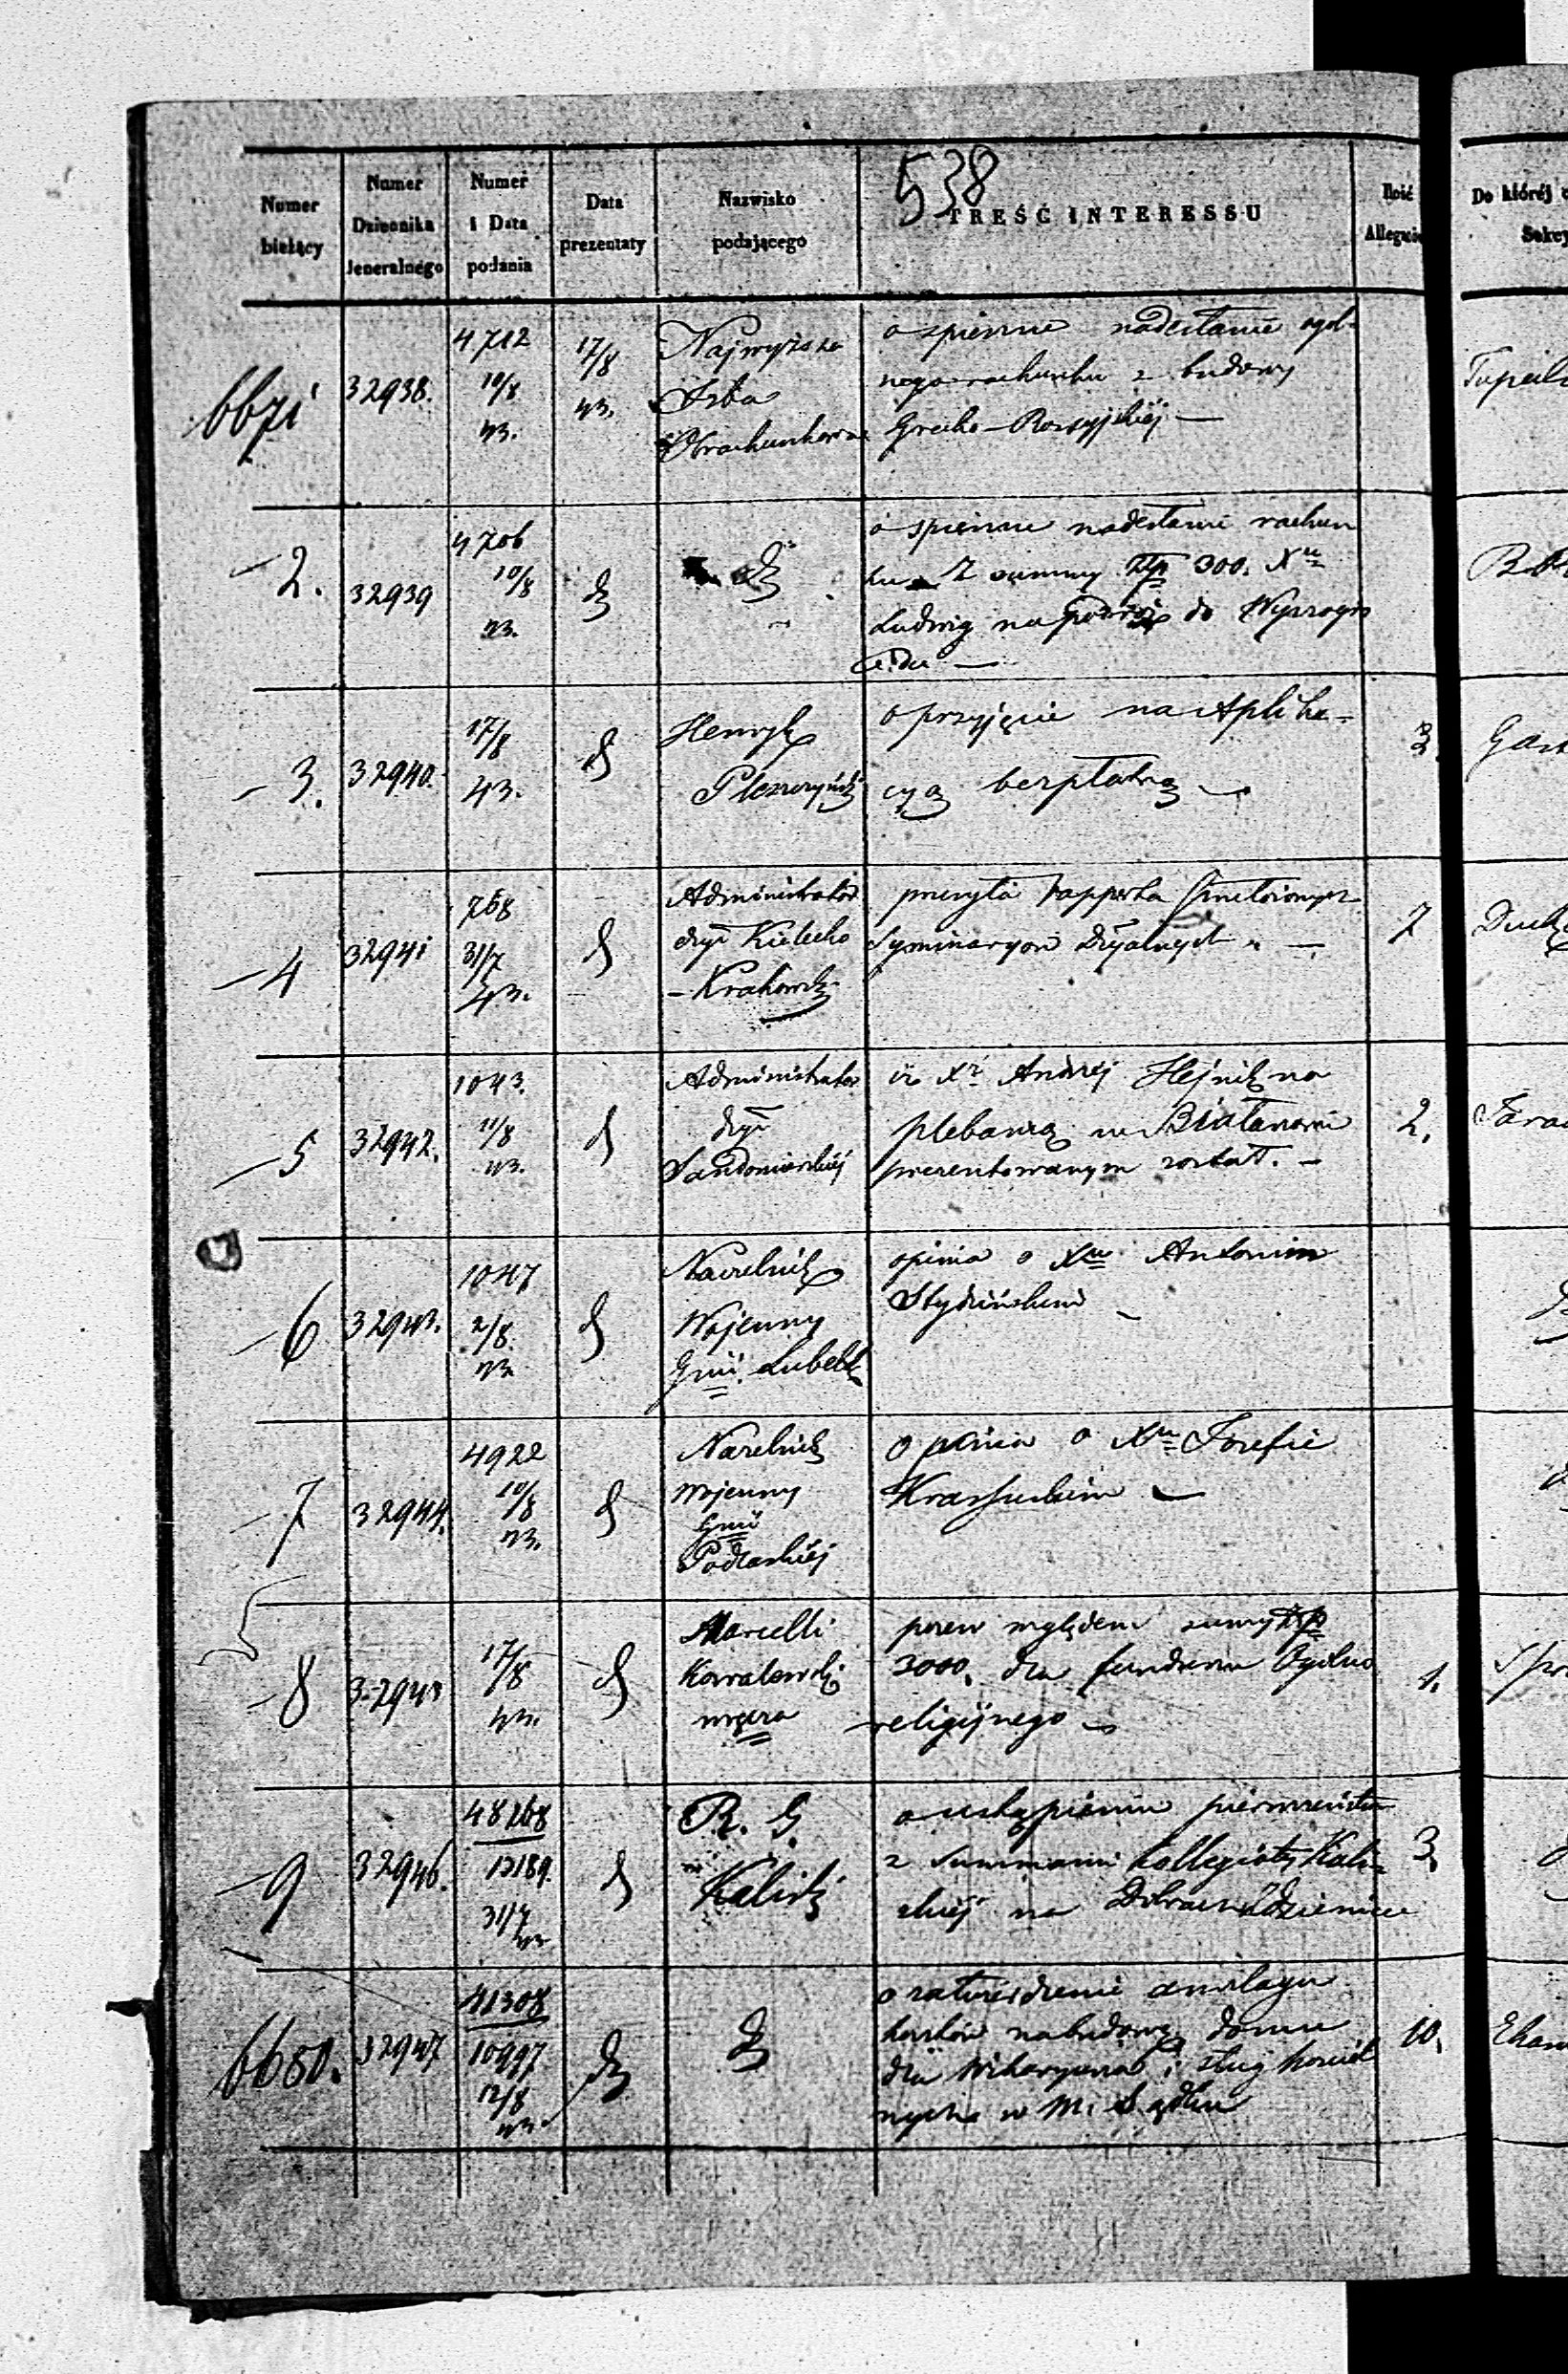 538
Numer bieżący
Numer Dziennika Jeneralnego
Numer i Data podania
Data prezentaty
Nazwisko podającego
TREŚĆ INTERESSU
Ilość
Do której
6671
32938.
4712
10/8
43.
17/8
43.
Najwyższa
Izba
Obrachunkowa
o spieszne nadesłanie ogól-
nego rachunku z budowy
Grecko-Rossyjskiéj —
2.
32939
4706
10/8
43.
o spieszne nadesłanie rachun
ku z summy Złp 300. Xu
Ludwig na podróż do Wyszogro
du —
3.
32940.
17/8
43.
Henryk
o przyjęcie na Aplika-
cyą bezpłatną
3.
4
32941
768
31/7
43.
Administrator
dyi Kielecko
-Krakowsk
przesyła rapporta
Seminaryow Dyalnych —
7
5
32942.
1043.
11/8
43.
Administrator
dyi
Sandomierskiéj
iż Xi Andrzéj Hejnik na
plebanią w
prezentowanym został. —
2.
6
32943.
1047
2/8.
43
Naczelnik
Wojenny
Gnii. Lubelsk
opinia o Xu Antonim
7
32944.
4922
10/8
43.
Naczelnik
Wojenny
Gnii
Podlaskiéj
Opinia o Xu Józefie
8
32945
17/8
43.
Marcelli
Kowalewski
względem summy Złp
3000. dla funduszu Ogólno
religijnego
1.
9
32946.
48268
12189.
31/7
43
R. G.
Kalisk
o ustąpieniu pierwszeństwa
z summami kollegiaty Kali-
skiéj na
3.
6680.
32947
41308
10997
12/8
43.
o zatwierdzenie anszlagu
kosztów na budowę domu
dla Wikaryusza i sług kościel
nych w M.
10.